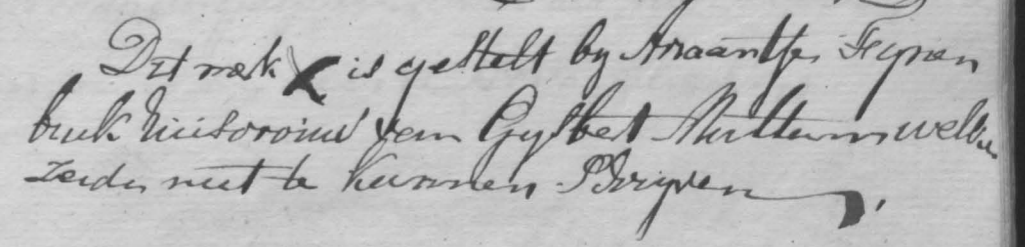 Dit merk X is gestelt by Ariaantje Feynen
buik huisvrouw van Gysbert Multum welke
zeide niet te kunnen Schryven